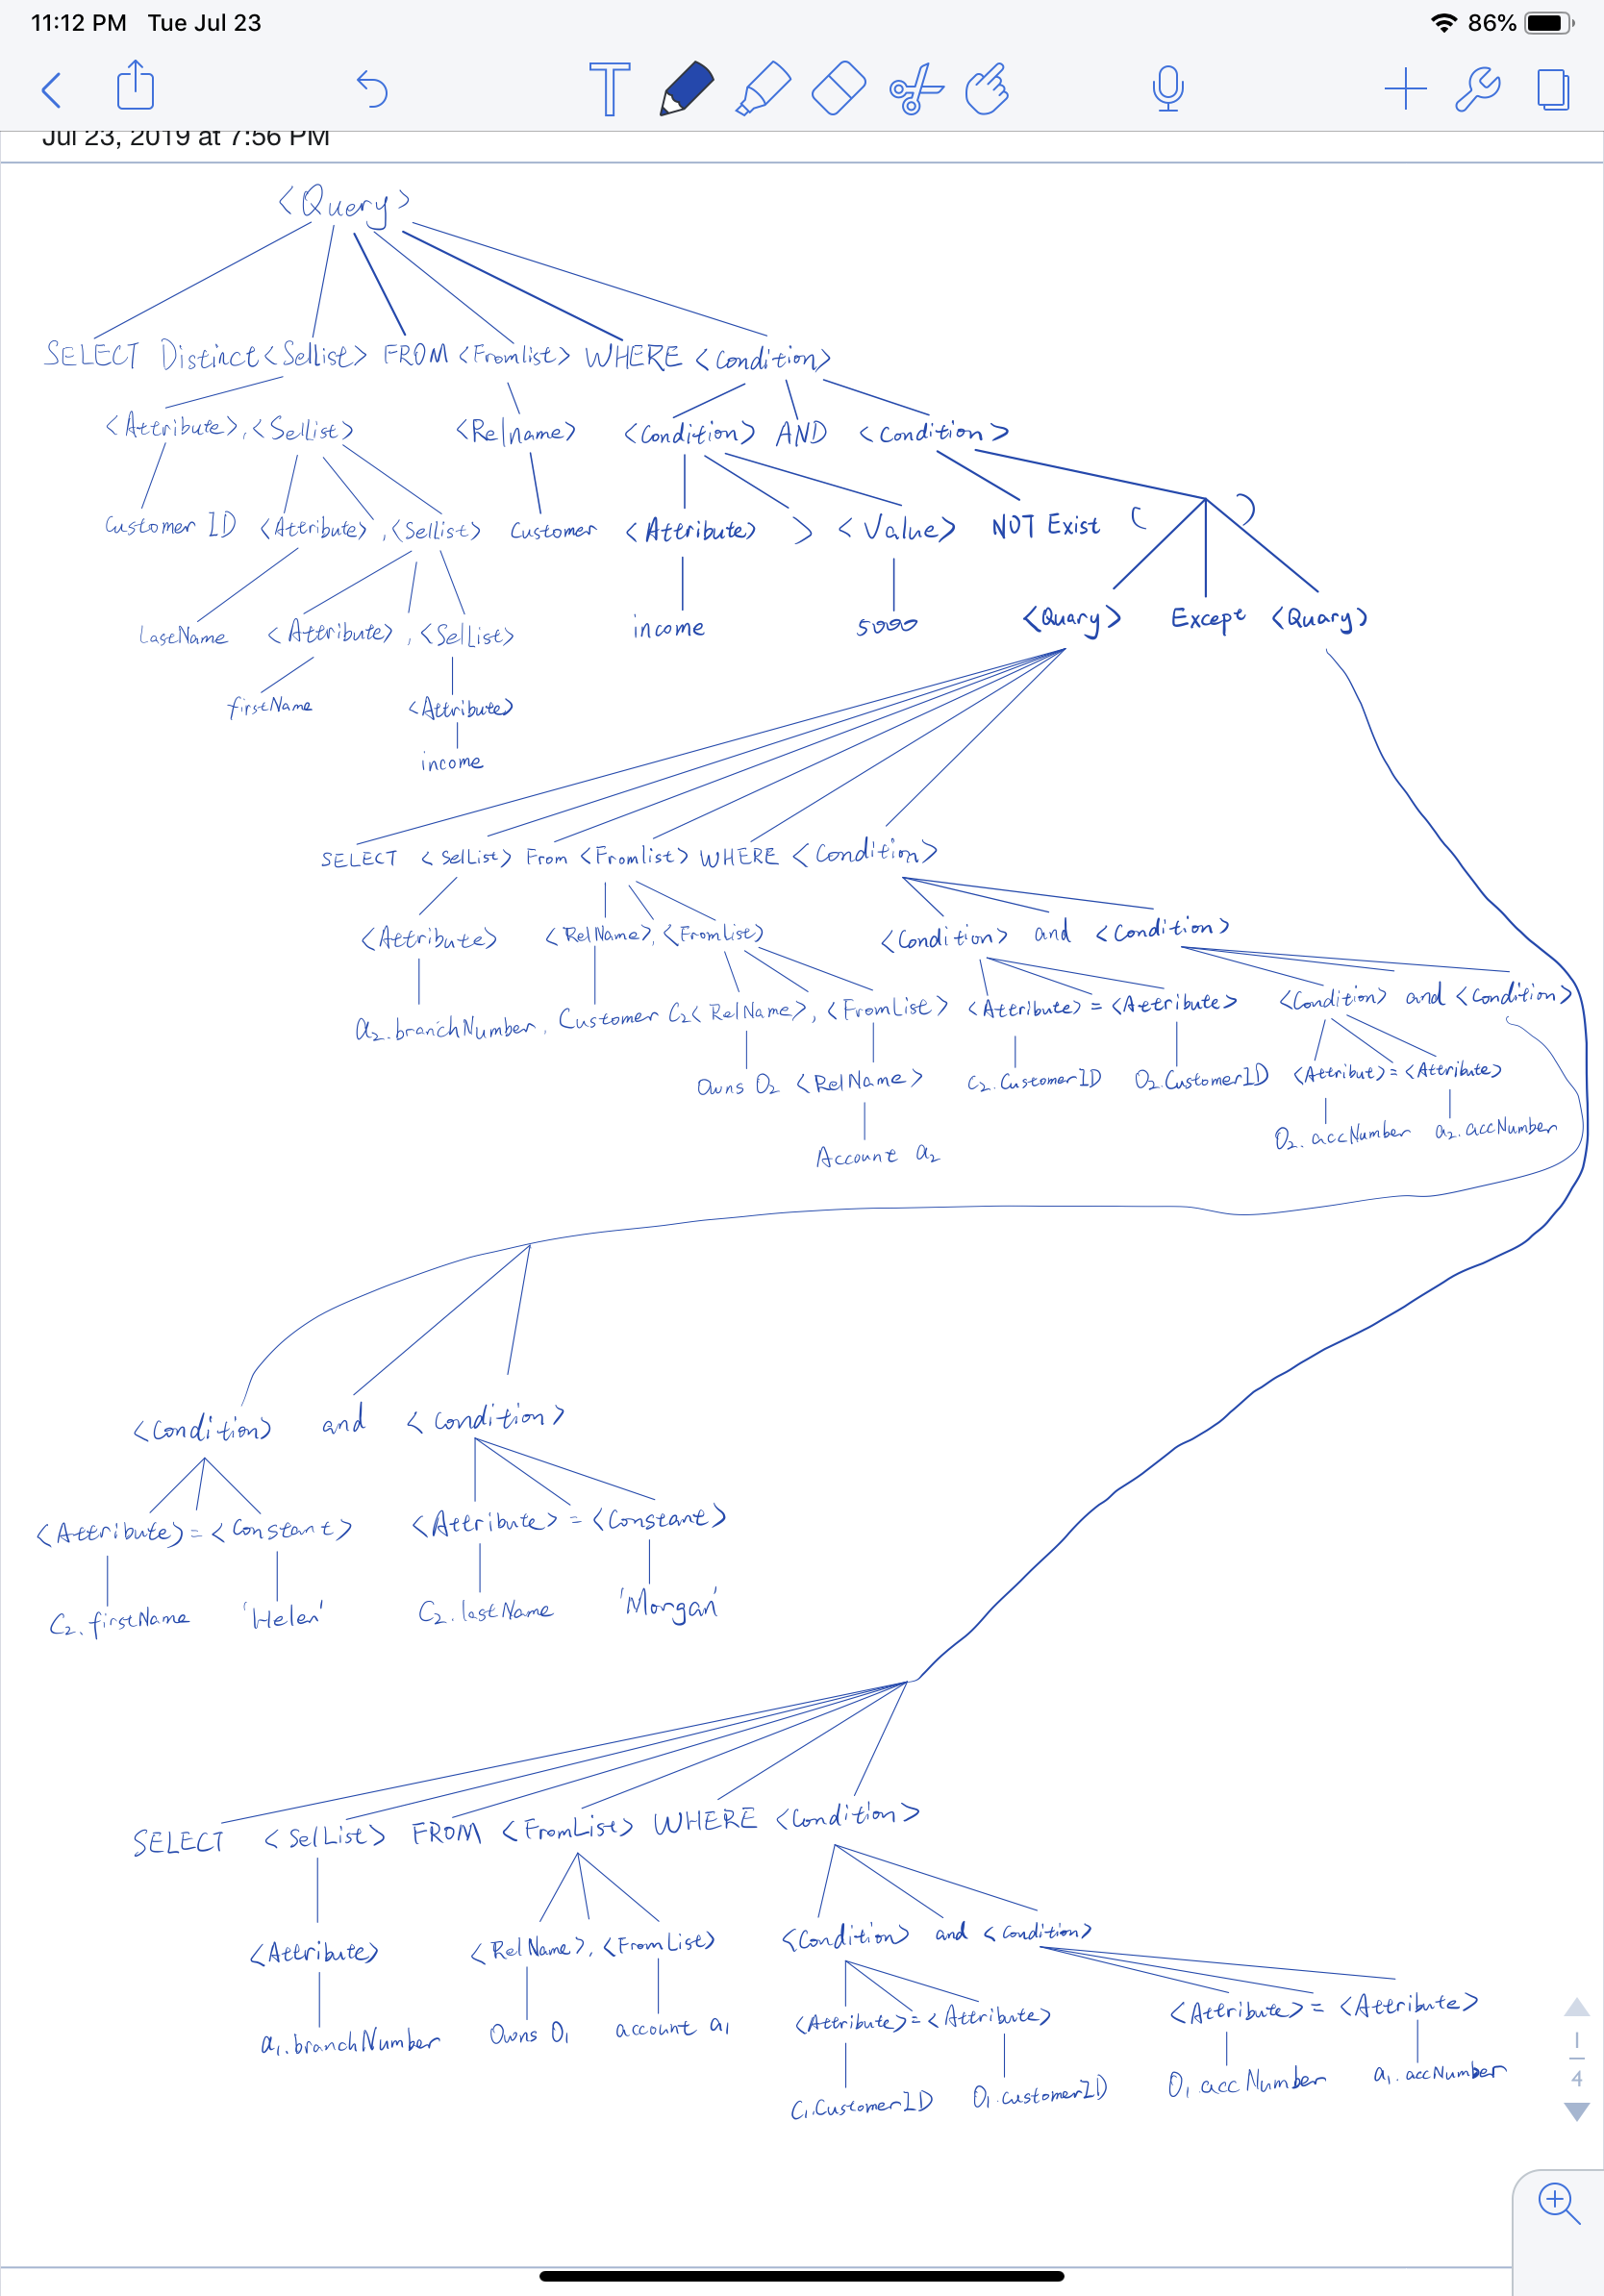 11:12 PM Tue Jul 23 86%
Jul 23, 2019 at 7:56 PM
<Query>
SELECT Distinct <Sellist> FROM <Fromlist> WHERE <Condition>
<Attribute>, <Sellist> <Relname> <Condition> AND <Condition>
Customer ID <Attribute>, <Sellist> Customer <Attribute> > <Value> NOT Exist ( )
lastName <Attribute>, <SelList> income 5000 <Quary> Except <Quary>
firstName <Attribute>
income
SELECT <SelList> From <Fromlist> WHERE <Condition>
<Attribute> <RelName>, <FromList> <Condition> and <Condition>
a2.branchNumber, Customer C2 <RelName>, <FromList> <Attribute> = <Attribute> <Condition> and <Condition>
Owns O2 <RelName> C2.CustomerID O2.CustomerID <Attribut> = <Attribute>
Account a2 O2.accNumber a2.accNumber
<Condition> and <Condition>
<Attribute> = <Constant> <Attribute> = <Constant>
C2.firstName 'Helen' C2.lastName 'Morgan'
SELECT <SelList> FROM <FromList> WHERE <Condition>
<Attribute> <RelName>, <FromList> <Condition> and <Condition>
a1.branchNumber Owns O1 account a1 <Attribute> = <Attribute> <Attribute> = <Attribute>
C1.CustomerID O1.customerID O1.accNumber a1.accNumber
1
4